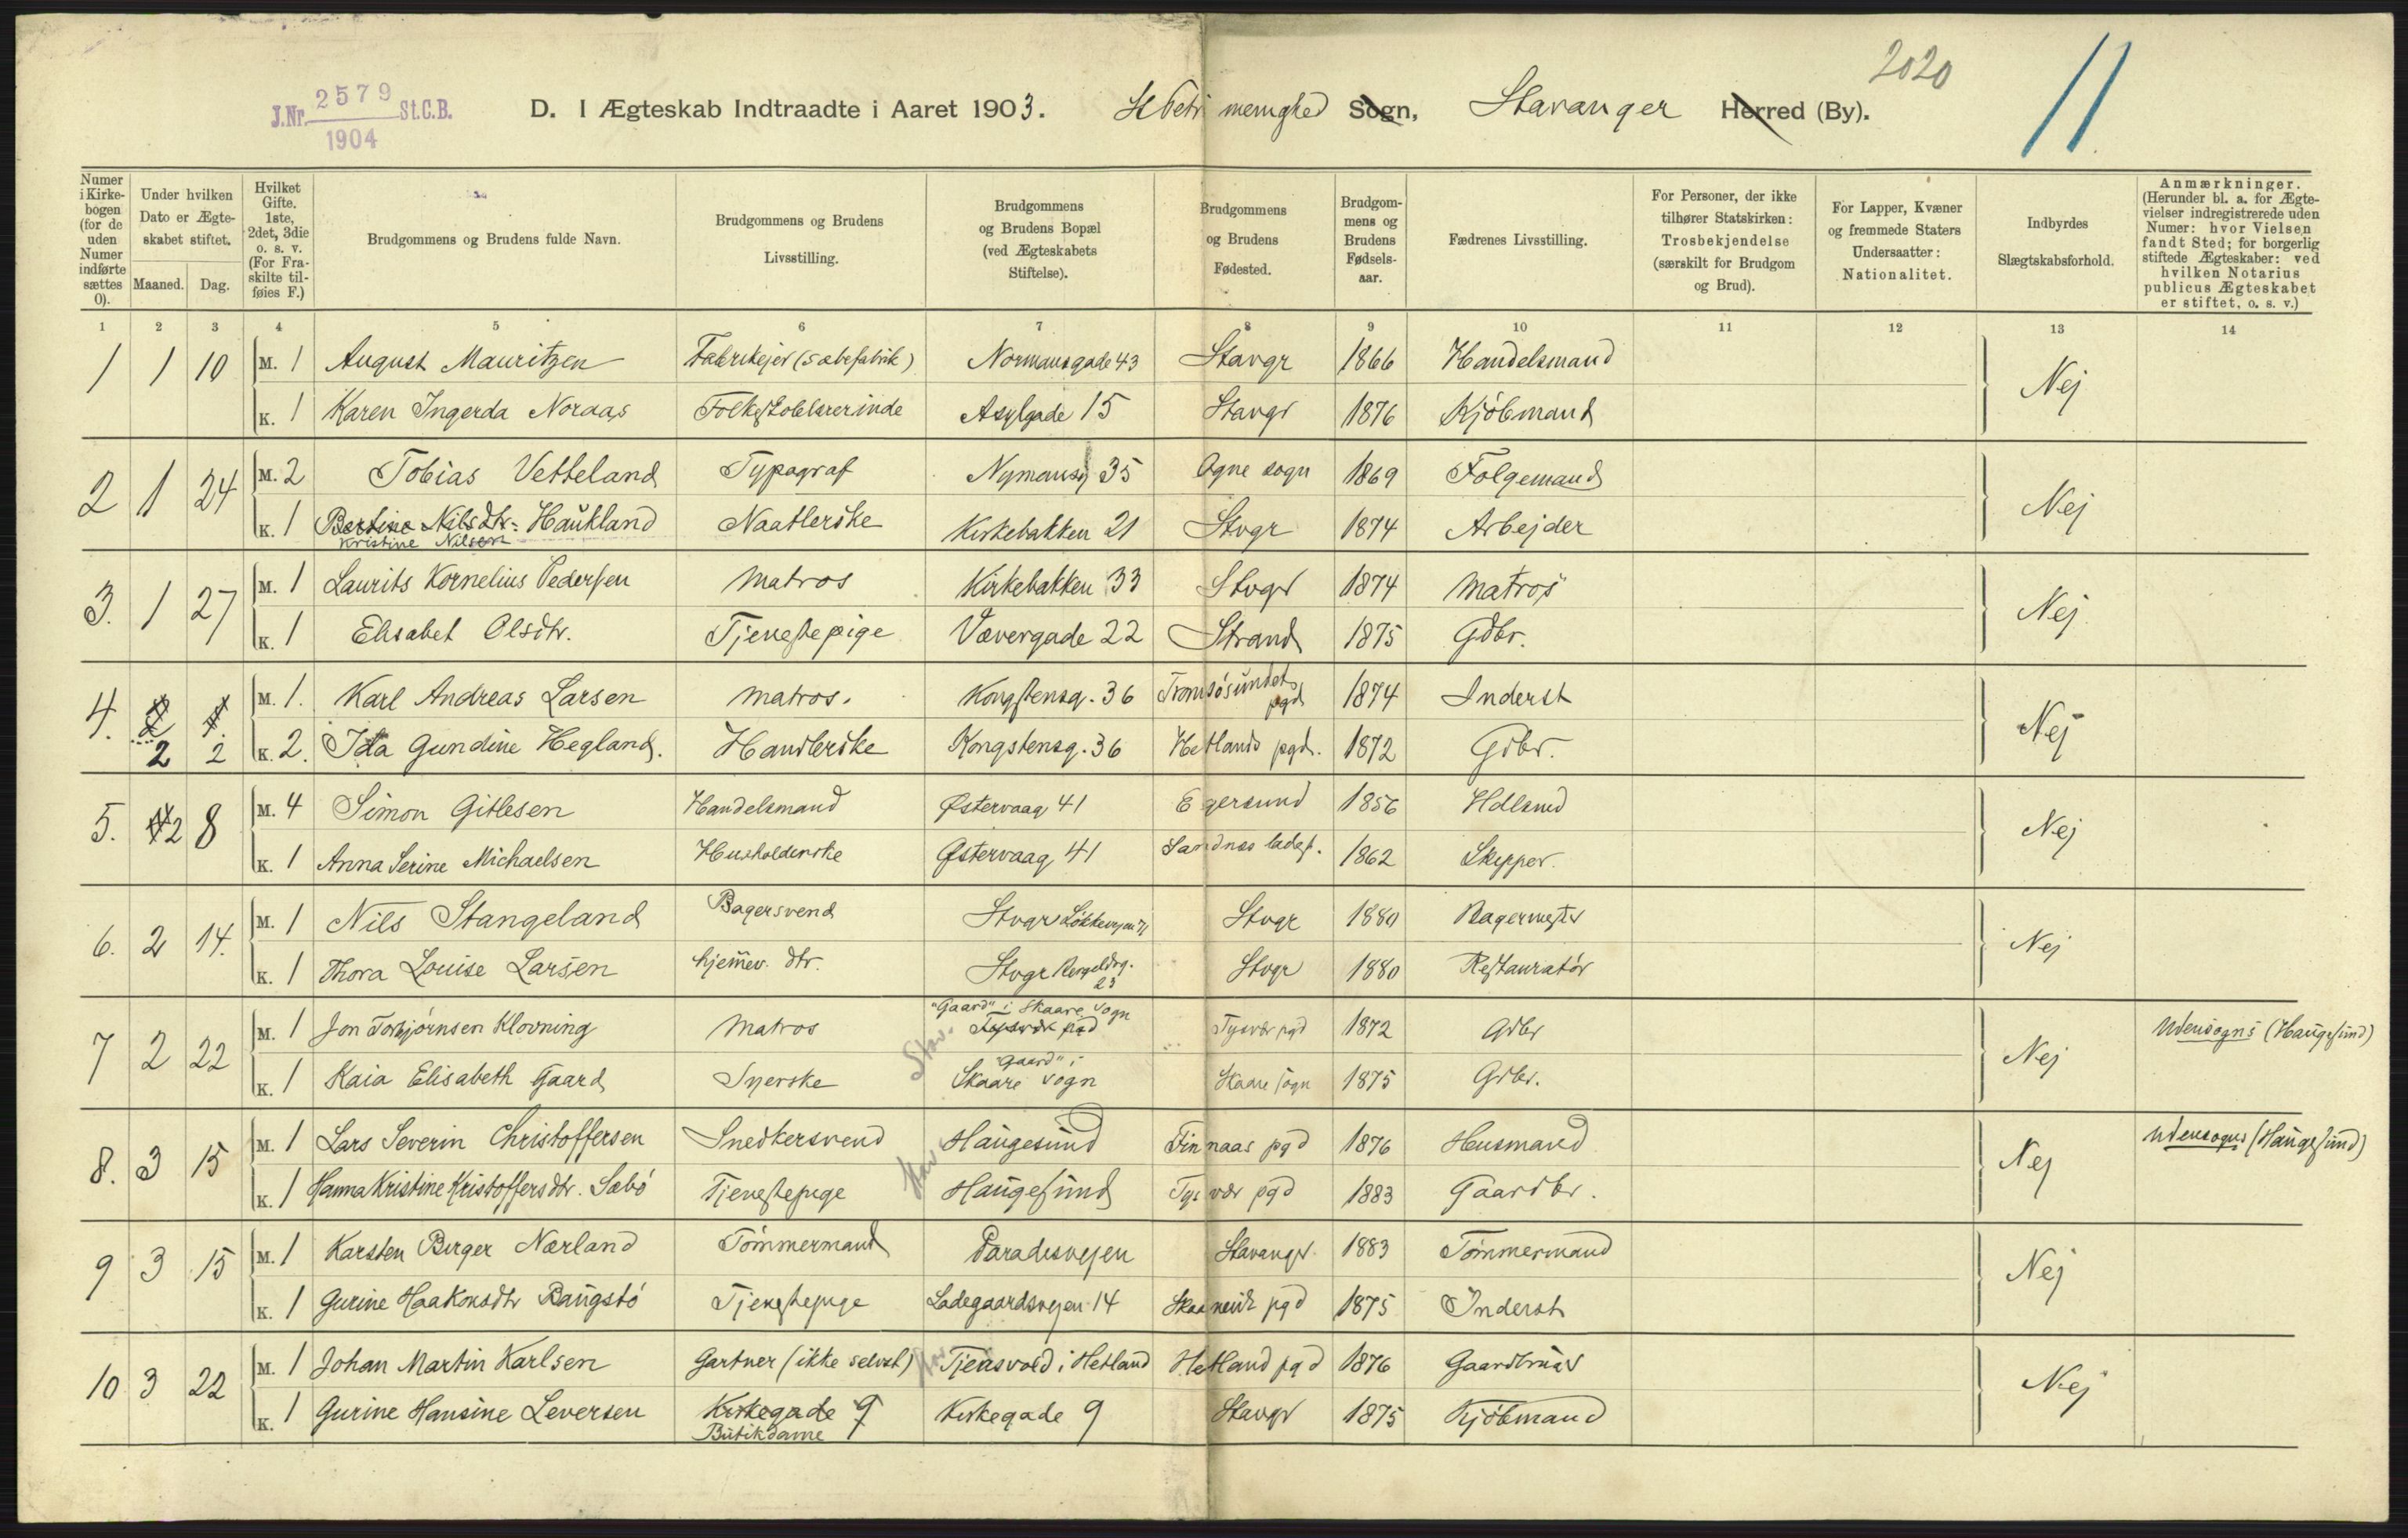 2020
11
J.Nr. 2579 St.C.B.
1904
D. I Ægteskab Indtraadte i Aaret 1903. St Petri menighed Sogn, Stavanger Herred (By).
Numer i Kirkebogen (for de uden Numer indførte sættes 0).
Under hvilken Dato er Ægteskabet stiftet.
Maaned. Dag.
Hvilket Gifte. 1ste, 2det, 3die o. s. v. (For Fraskilte tilføies F.)
Brudgommens og Brudens fulde Navn.
Brudgommens og Brudens Livsstilling.
Brudgommens og Brudens Bopæl (ved Ægteskabets Stiftelse).
Brudgommens og Brudens Fødested.
Brudgommens og Brudens Fødselsaar.
Fædrenes Livsstilling.
For Personer, der ikke tilhører Statskirken: Trosbekjendelse (særskilt for Brudgom og Brud).
For Lapper, Kvæner og fremmede Staters Undersaatter: Nationalitet.
Indbyrdes Slægtskabsforhold.
Anmærkninger. (Herunder bl. a. for Ægtevielser indregistrerede uden Numer: hvor Vielsen fandt Sted; for borgerlig stiftede Ægteskaber: ved hvilken Notarius publicus Ægteskabet er stiftet, o. s. v.)
1 2 3 4 5 6 7 8 9 10 11 12 13 14
1 1 10 M. 1 August Mauritzen Fabrikejer (Sæbefabrik) Normansgade 43 Stavgr 1866 Handelsmand Nej
K. 1 Karen Ingerda Noraas Folkeskolelærerinde Asylgade 15 Stavgr 1876 Kjøbmand
2 1 24 M. 2 Tobias Vetteland Typograf Nymansg 35 Ogne sogn 1869 Følgemand Nej
K. 1 Bertine Nilsdtr. Haukland Naatlerske Kirkebakken 21 Stvgr 1874 Arbejder
Kristine Nilsen
3. 1 27 M. 1 Laurits Kornelius Pedersen Matros Kirkebakken 33 Stvgr 1874 Matros Nej
K. 1 Elisabet Olsdtr. Tjenestepige Vævergade 22 Strand 1875 Gdbr.
4. 2 M. 1. Karl Andreas Larsen Matros. Kongstensg. 36 Tromsøsundets pgd 1874 Inderst Nej
2 2 K. 2. Ida Gundine Hegland. Handlerske Kongstensg. 36 Hetlands pgd. 1872 Gdbr.
5. 2 8 M. 4 Simon Gitlesen Handelsmand Østervaag 41 Egersund 1856 Hdlsmd Nej
K. 1 Anna Serine Michaelsen Husholderske Østervaag 41 Sandnes ladest. 1862 Skipper.
6. 2 14. M. 1 Nils Stangeland Bagersvend Stvgr Løkkevejen 71 Stvgr 1880 Bagermester Nej
K. 1 Thora Louise Larsen hjemmev. dtr. Stvgr Bergeldsg. 23 Stvgr 1880 Restauratør
7 2 22 M. 1 Jon Torbjørnsen Klovning Matros "Gaard" i Skaare sogn Tysvær pgd Tysvær pgd 1872 Gdbr Nej Udensogns (Haugesund)
Stav.
K. 1 Kaia Elisabeth Gaard Syerske "Gaard" i Skaare sogn Skaare sogn 1875 Gdbr.
8. 3 15 M. 1 Lars Severin Christoffersen Snedkersvend Haugesund Finnaas pgd 1876 Husmand Nej Udensogns (Haugesund)
Stav
K. 1 Hanna Kristine Kristoffersdtr. Sæbø Tjenestepige Haugesund Tysvær pgd 1883 Gaardbr.
9 3 15 M. 1 Karsten Birger Nærland Tømmermand Paradisvejen Stavanger 1883 Tømmermand Nej
K. 1 Gurine Haakonsdtr Baugstø Tjenestepige Ladegaardsvejen 14 Skaanevik pgd 1875 Inderst
10 3 22 M. 1 Johan Martin Karlsen Gartner (ikke selvst) Tjensvold i Hetland Hetland pgd 1876 Gaardbruger Nej
K. 1 Gurine Hansine Leversen Kirkegade 9 Kirkegade 9 Stavgr 1875 Kjøbmand
Butikdame